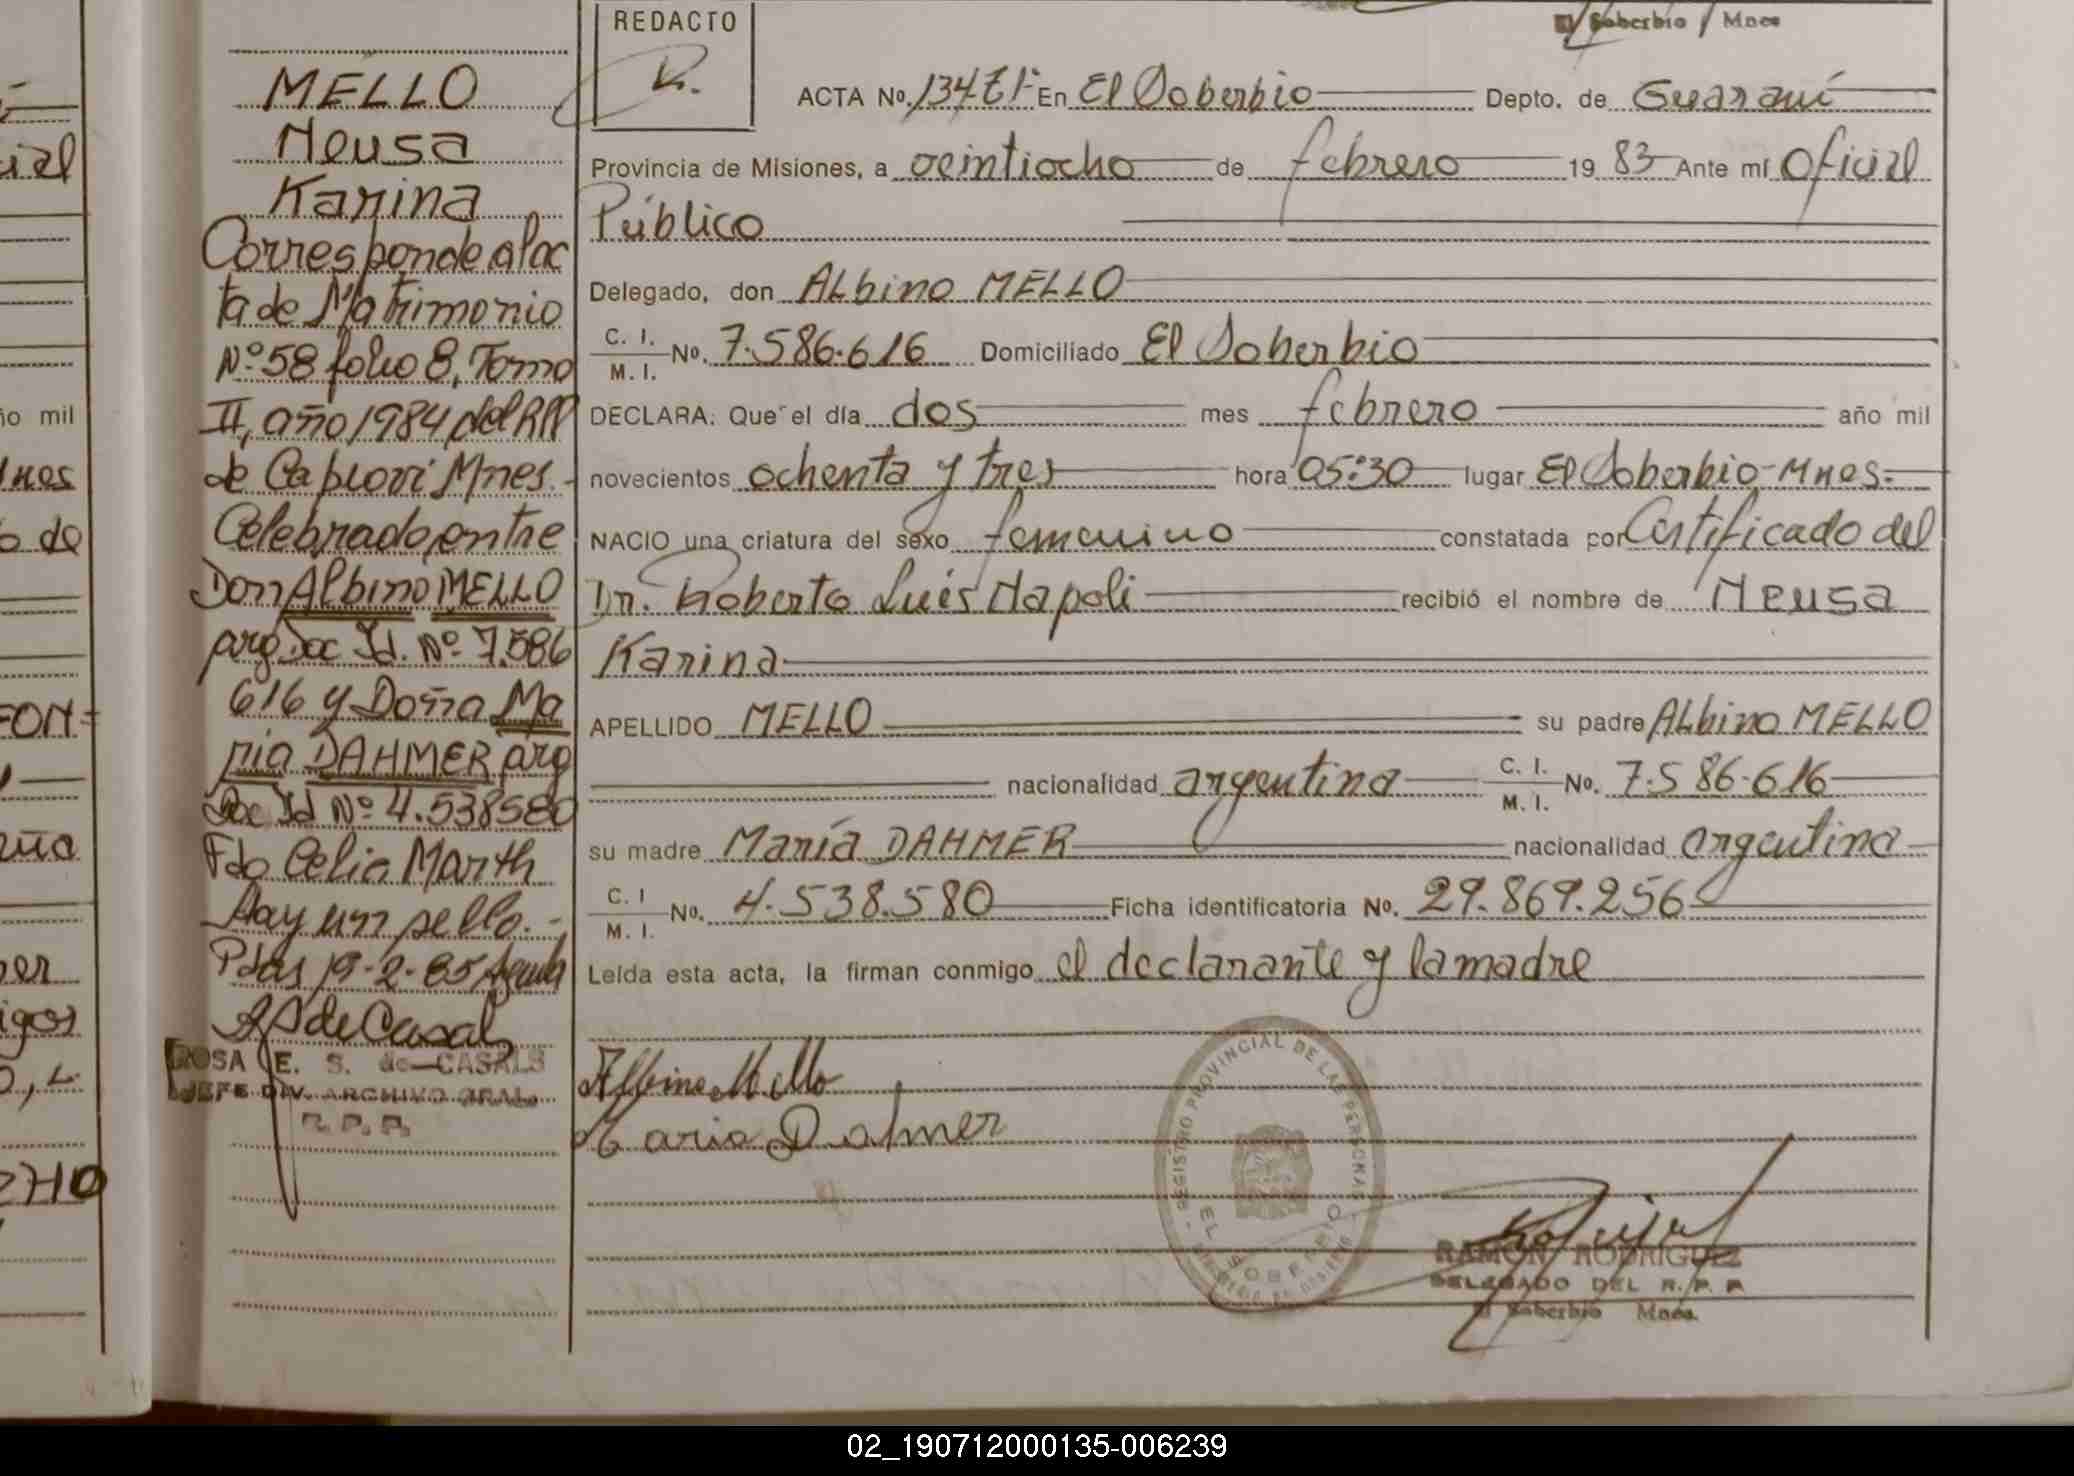 El Soberbio Mnes
REDACTO
MELLO
Neusa
Karina
Corresponde al ac
ta de Matrimonio
Nº 58 folio 8, Tomo
II, año 1984 del RPP
de Capiovi Mnes.-
Celebrado entre
Don Albino MELLO
arg Doc Id. Nº 7.586
616 y Doña Ma
ria DAHMER arg
Doc Id Nº 4.538580
Fdo Celia Marth
Hay un sello.-
Pdas 19-2-85
ROSA E. S. de CASALS
JEFE DIV. ARCHIVO GRAL.
R. P. P.
ACTA Nº. 134 En El Soberbio Depto. de Guaraní
Provincia de Misiones, a veintiocho de febrero 19 83 Ante mí Oficial
Público
Delegado, don Albino MELLO
C. I. M. I. Nº. 7.586.616 Domiciliado El Soberbio
DECLARA: Que el día dos mes febrero año mil
novecientos ochenta y tres hora 05:30 lugar El Soberbio-Mnes.
NACIO una criatura del sexo femenino constatada por Certificado del
Dr. Roberto Luis Napoli recibió el nombre de Neusa
Karina
APELLIDO MELLO su padre Albino MELLO
nacionalidad argentina C. I. M. I. No. 7.586.616
su madre María DAHMER nacionalidad argentina
C. I M. I. No. 4.538.580 Ficha identificatoria Nº. 29.869.256
Leída esta acta, la firman conmigo el declarante y la madre
Albino Mello
Maria Dahmer
REGISTRO PROVINCIAL DE LAS PERSONAS
EL SOBERBIO
RAMON RODRIGUEZ
DELEGADO DEL R. P. P
El Soberbio Mnes.
ño mil
02_190712000135-006239